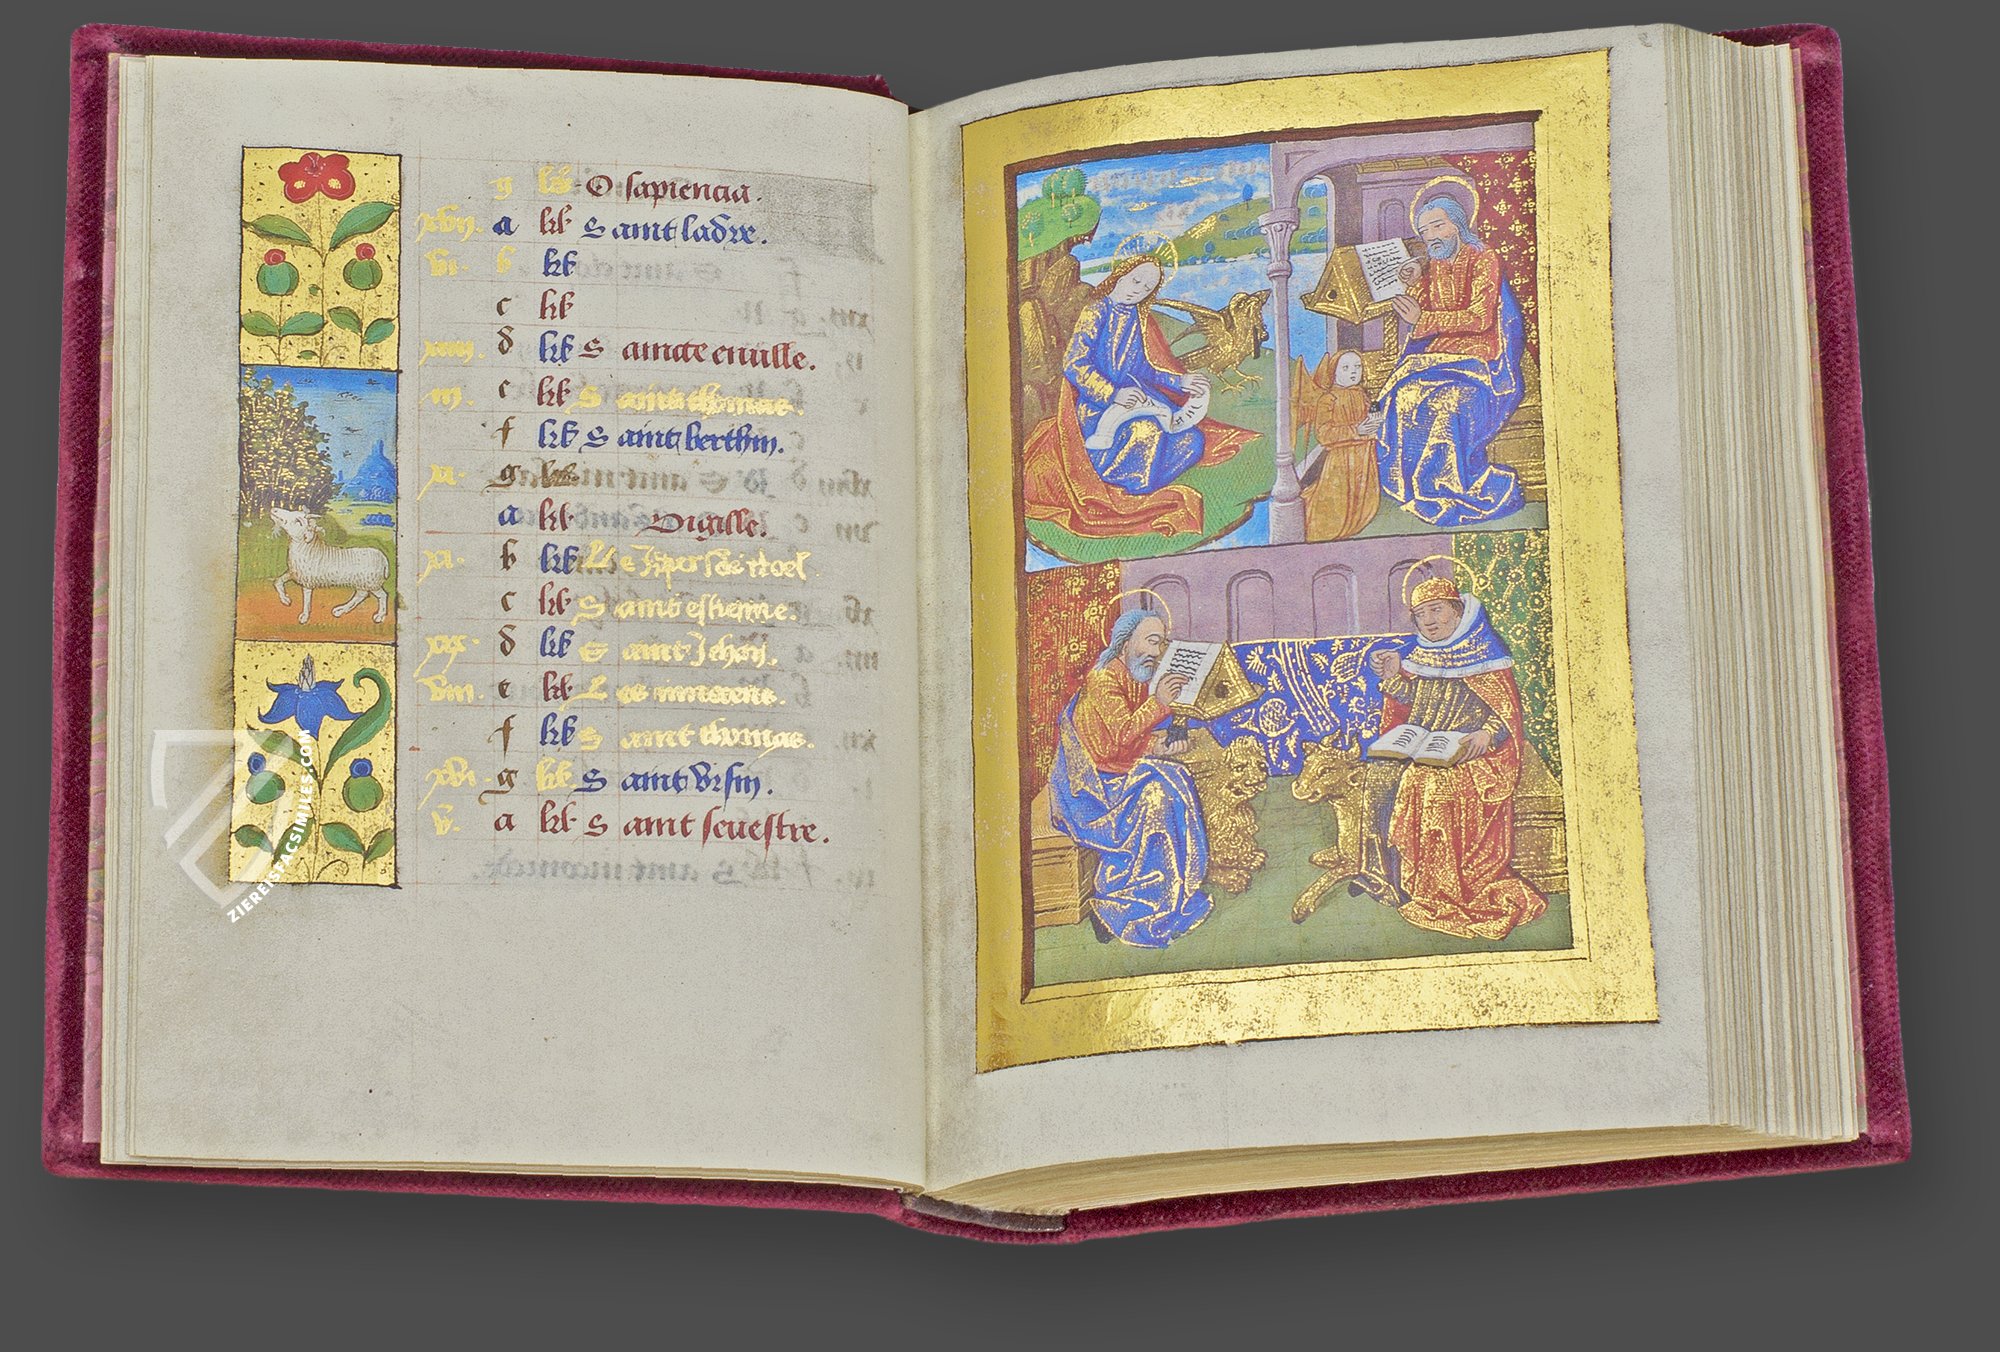 g kł O sapiencia.
xvii. a kł Saint ladre.
vi. b kł
c kł
xiiii. d kł S aincte euuille.
iii. e kł S aint thomas.
f kł S aint berthin.
xi. g kł
a kł Vigille.
xix. b kł Le Jour de noel.
c kł S aint estienne.
d kł S aint Jehan.
viii. e kł Les innocens.
f kł S aint thomas.
xvi. g kł S aint Vrsin.
v. a kł S aint seuestre.
ZIEREISFACSIMILES.COM